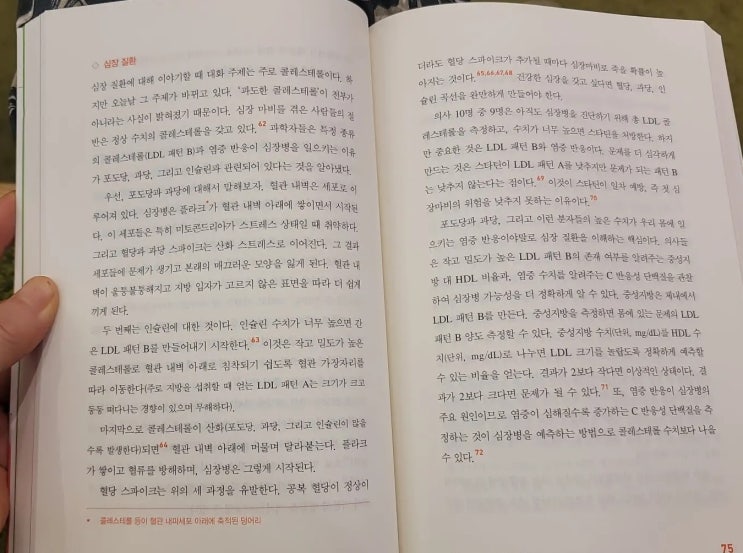 ◇ 심장 질환
심장 질환에 대해 이야기할 때 대화 주제는 주로 콜레스테롤이다. 하
지만 오늘날 그 주제가 바뀌고 있다. '과도한 콜레스테롤'이 전부가
아니라는 사실이 밝혀졌기 때문이다. 심장 마비를 겪은 사람들의 절
반은 정상 수치의 콜레스테롤을 갖고 있다.62 과학자들은 특정 종류
의 콜레스테롤(LDL 패턴 B)과 염증 반응이 심장병을 일으키는 이유
가 포도당, 과당, 그리고 인슐린과 관련되어 있다는 것을 알아냈다.
우선, 포도당과 과당에 대해서 말해보자. 혈관 내벽은 세포로 이
루어져 있다. 심장병은 플라크*가 혈관 내벽 아래에 쌓이면서 시작된
다. 이 세포들은 특히 미토콘드리아가 스트레스 상태일 때 취약하다.
그리고 혈당과 과당 스파이크는 산화 스트레스로 이어진다. 그 결과
세포들에 문제가 생기고 본래의 매끄러운 모양을 잃게 된다. 혈관 내
벽이 울퉁불퉁해지고 지방 입자가 고르지 않은 표면을 따라 더 쉽게
끼게 된다.
두 번째는 인슐린에 대한 것이다. 인슐린 수치가 너무 높으면 간
은 LDL 패턴 B를 만들어내기 시작한다.63 이것은 작고 밀도가 높은
콜레스테롤로 혈관 내벽 아래로 침착되기 쉽도록 혈관 가장자리를
따라 이동한다(주로 지방을 섭취할 때 얻는 LDL 패턴 A는 크기가 크고
둥둥 떠다니는 경향이 있으며 무해하다).
마지막으로 콜레스테롤이 산화(포도당, 과당, 그리고 인슐린이 많을
수록 발생한다)되면64 혈관 내벽 아래에 머물며 달라붙는다. 플라크
가 쌓이고 혈류를 방해하며, 심장병은 그렇게 시작된다.
혈당 스파이크는 위의 세 과정을 유발한다. 공복 혈당이 정상이
* 콜레스테롤 등이 혈관 내피세포 아래에 축적된 덩어리
더라도 혈당 스파이크가 추가될 때마다 심장마비로 죽을 확률이 높
아지는 것이다.65,66,67,68 건강한 심장을 갖고 싶다면 혈당, 과당, 인
슐린 곡선을 완만하게 만들어야 한다.
의사 10명 중 9명은 아직도 심장병을 진단하기 위해 총 LDL 콜
레스테롤을 측정하고, 수치가 너무 높으면 스타틴을 처방한다. 하지
만 중요한 것은 LDL 패턴 B와 염증 반응이다. 문제를 더 심각하게
만드는 것은 스타틴이 LDL 패턴 A를 낮추지만 문제가 되는 패턴 B
는 낮추지 않는다는 점이다.69 이것이 스타틴이 일차 예방, 즉 첫 심
장마비의 위험을 낮추지 못하는 이유이다.70
포도당과 과당, 그리고 이런 분자들의 높은 수치가 우리 몸에 일
으키는 염증 반응이야말로 심장 질환을 이해하는 핵심이다. 의사들
은 작고 밀도가 높은 LDL 패턴 B의 존재 여부를 알려주는 중성지
방 대 HDL 비율과, 염증 수치를 알려주는 C 반응성 단백질을 관찰
하여 심장병 가능성을 더 정확하게 알 수 있다. 중성지방은 체내에서
LDL 패턴 B를 만든다. 중성지방을 측정하면 몸에 있는 문제의 LDL
패턴 B 양도 측정할 수 있다. 중성지방 수치(단위, mg/dL)를 HDL 수
치(단위, mg/dL)로 나누면 LDL 크기를 놀랍도록 정확하게 예측할
수 있는 비율을 얻는다. 결과가 2보다 작다면 이상적인 상태이다. 결
과가 2보다 크다면 문제가 될 수 있다.71 또, 염증 반응이 심장병의
주요 원인이므로 염증이 심해질수록 증가하는 C 반응성 단백질을 측
정하는 것이 심장병을 예측하는 방법으로 콜레스테롤 수치보다 나을
수 있다.72
75